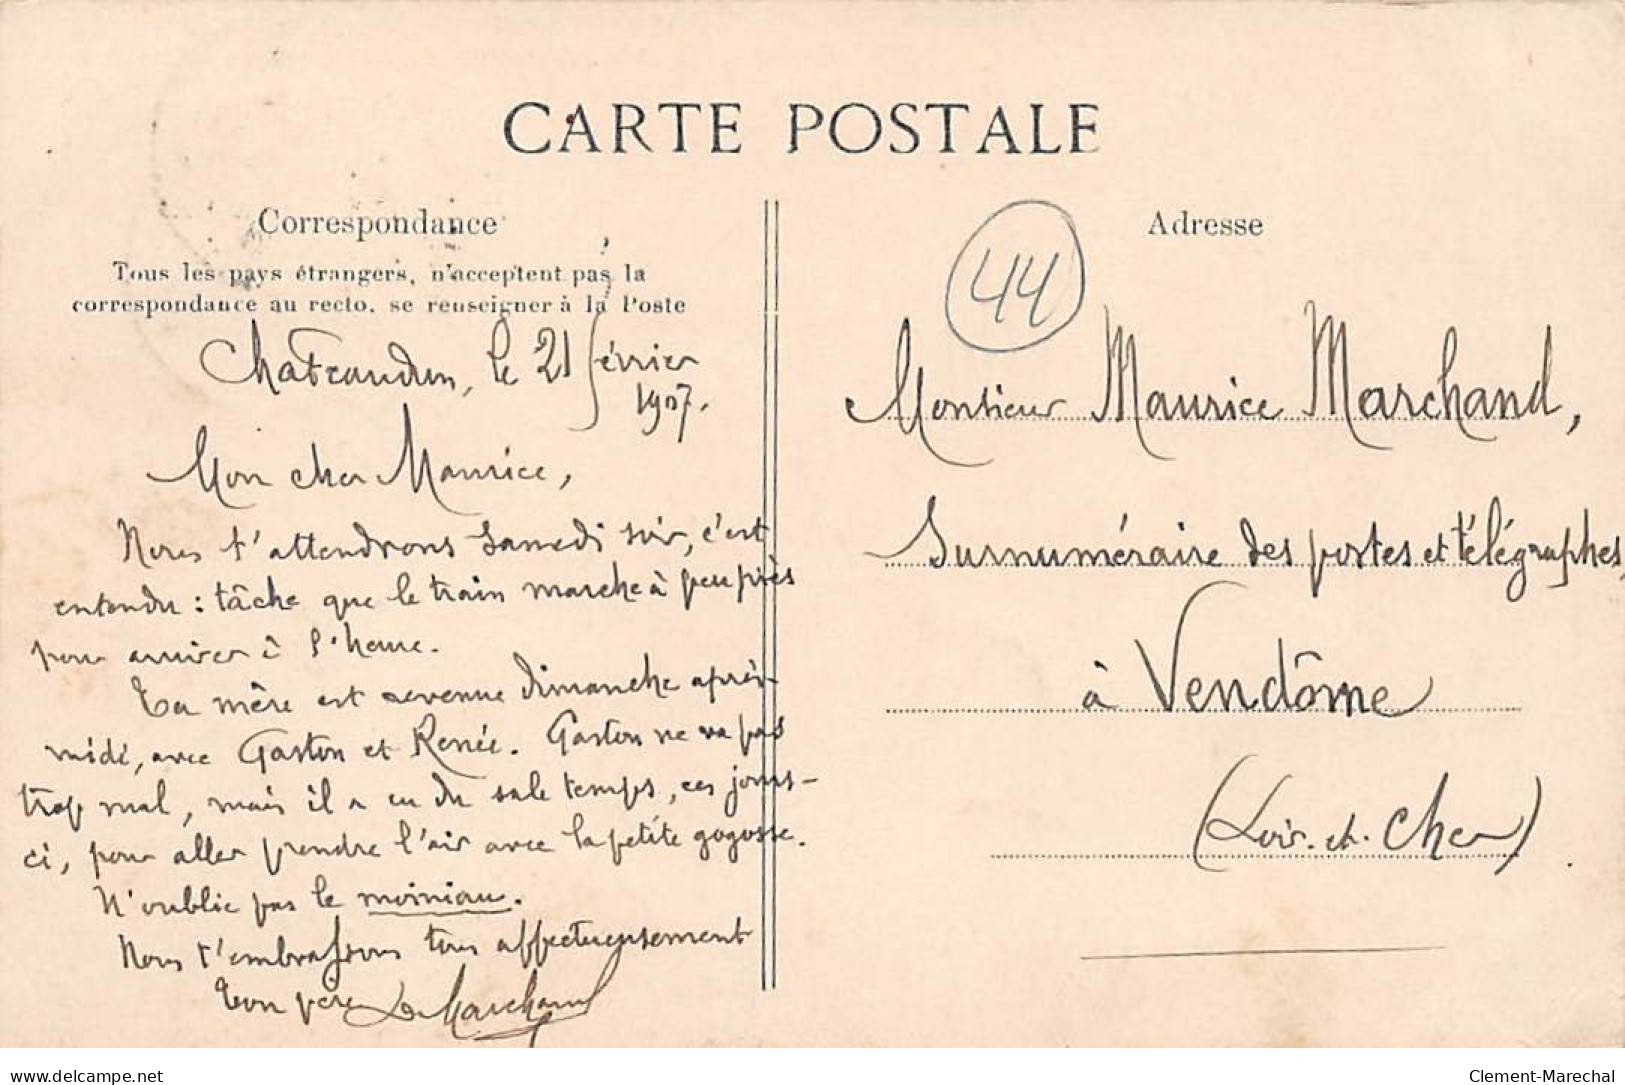 CARTE POSTALE
Correspondance
Tous les pays étrangers, n'acceptent pas la
correspondance au recto, se renseigner à la Poste
Chateaudun, le 21 février
1907.
Mon cher Maurice,
Nous t'attendrons Samedi soir, c'est
entendu : tâche que le train marche à peu près
pour arriver à l'heure.
Ta mère est revenue Dimanche après-
midi, avec Gaston et Renée. Gaston ne va pas
trop mal, mais il a eu du sale temps, ces jours-
ci, pour aller prendre l'air avec la petite gogosse.
N'oublie pas le moiniau.
Nous t'embrassons tous affectueusement
Ton père Marchand
Adresse
44
Monsieur Maurice Marchand,
Surnuméraire des postes et télégraphes,
à Vendôme
(Loir-et-Cher)
www.delcampe.net
Clement-Marechal